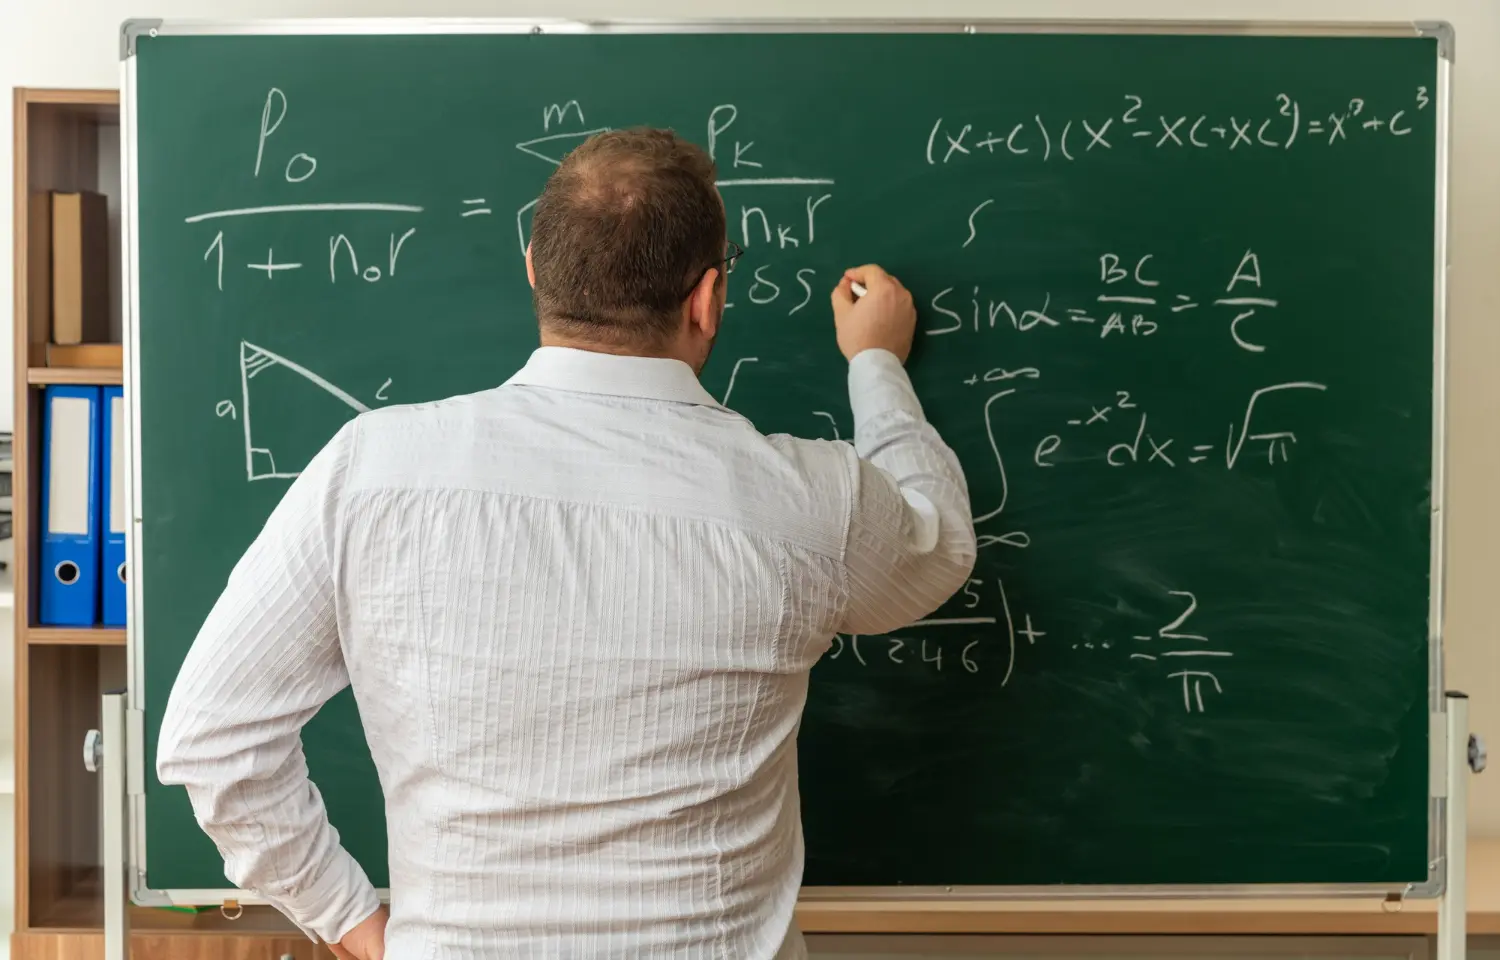 P₀ / 1 + n₀r = m P_K / n_K r
(x+c)(x²-xc+xc²)=x³+c³
S
δS
sinα = BC / AB = A / C
a
c
+∞ ∫ ∞ e^-x² dx = √π
5 / (2·4 6) ) + ... = 2 / π